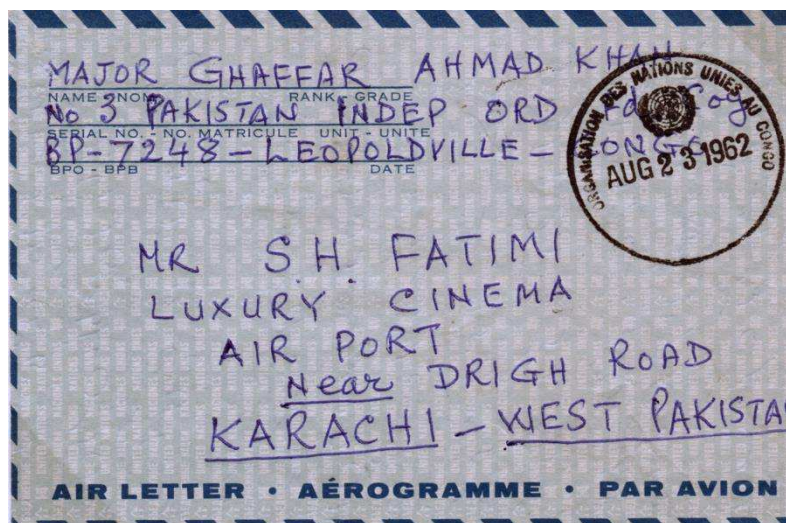 MAJOR GHAFFAR AHMAD KHAN
NAME - NOM RANK - GRADE
No 3 PAKISTAN INDEP ORD Fd Coy
SERIAL NO. - NO. MATRICULE UNIT - UNITE
BP-7248-LEOPOLDVILLE- CONGO
BPO - BPB DATE
ORGANISATION DES NATIONS UNIES AU CONGO
AUG 23 1962
MR S.H. FATIMI
LUXURY CINEMA
AIR PORT
Near DRIGH ROAD
KARACHI - WEST PAKISTAN
AIR LETTER • AÉROGRAMME • PAR AVION